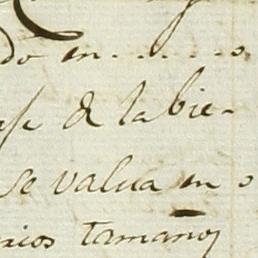 do en . . . . . . o
se & la bie-
se valua en o
rios tamaños